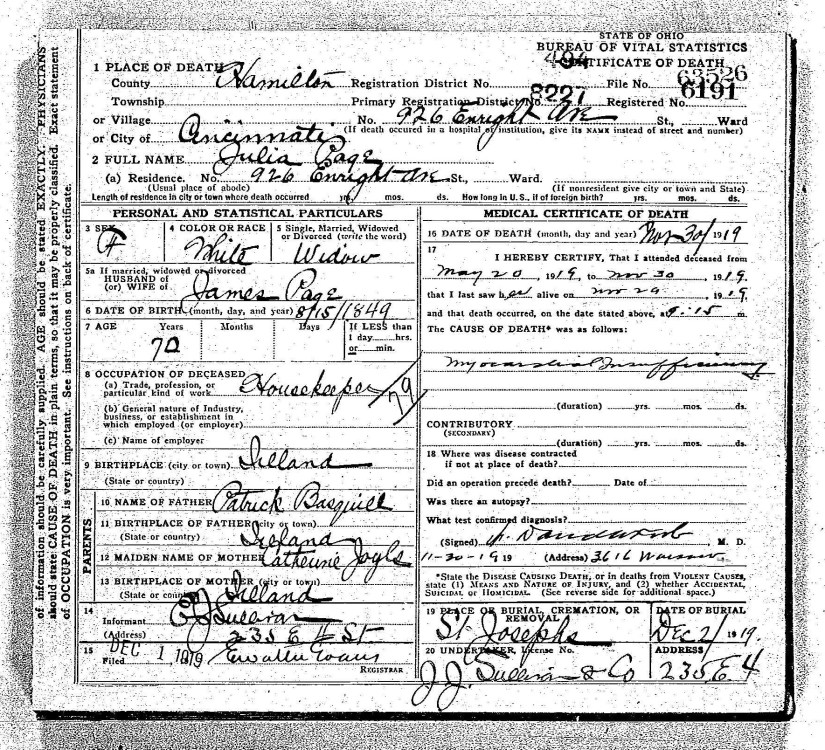 STATE OF OHIO
BUREAU OF VITAL STATISTICS
CERTIFICATE OF DEATH
1 PLACE OF DEATH
County Hamilton Registration District No. 494 File No. 63526
Township Primary Registration District No. 8227 Registered No. 6191
or Village No. 926 Enright Ave St., Ward
or City of Cincinnati (If death occured in a hospital or institution, give its NAME instead of street and number)
2 FULL NAME Julia Page
(a) Residence. No. 926 Enright Ave St., Ward.
(Usual place of abode) (If nonresident give city or town and State)
Length of residence in city or town where death occurred yrs. mos. ds. How long in U.S., if of foreign birth? yrs. mos. ds.
PERSONAL AND STATISTICAL PARTICULARS
3 SEX F
4 COLOR OR RACE White
5 Single, Married, Widowed or Divorced (write the word) Widow
5a If married, widowed or divorced
HUSBAND of
(or) WIFE of James Page
6 DATE OF BIRTH (month, day, and year) 8/15/1849
7 AGE Years Months Days If LESS than
1 day hrs.
or min.
70
8 OCCUPATION OF DECEASED
(a) Trade, profession, or
particular kind of work Housekeeper 79
(b) General nature of Industry,
business, or establishment in
which employed (or employer)
(c) Name of employer
9 BIRTHPLACE (city or town) Ireland
(State or country)
PARENTS
10 NAME OF FATHER Patrick Basquill
11 BIRTHPLACE OF FATHER (city or town)
(State or country) Ireland
12 MAIDEN NAME OF MOTHER Catherine Joyle
13 BIRTHPLACE OF MOTHER (city or town)
(State or country) Ireland
14
Informant J Sullivan
(Address) 235 E 4 St
15
Filed DEC 1 1919 Evans
REGISTRAR
MEDICAL CERTIFICATE OF DEATH
16 DATE OF DEATH (month, day and year) Nov 30/1919
17
I HEREBY CERTIFY, That I attended deceased from
May 20, 1919, to Nov 30, 1919.
that I last saw her alive on Nov 29, 1919,
and that death occurred, on the date stated above, at :15 m.
The CAUSE OF DEATH* was as follows:
Myocardial Insufficiency
(duration) yrs. mos. ds.
CONTRIBUTORY
(SECONDARY)
(duration) yrs. mos. ds.
18 Where was disease contracted
if not at place of death?
Did an operation precede death? Date of
Was there an autopsy?
What test confirmed diagnosis?
(Signed) M. D.
11-30-1919 (Address) 3616 Warsaw
*State the DISEASE CAUSING DEATH, or in deaths from VIOLENT CAUSES,
state (1) MEANS AND NATURE OF INJURY, and (2) whether ACCIDENTAL,
SUICIDAL or HOMICIDAL. (See reverse side for additional space.)
19 PLACE OF BURIAL, CREMATION, OR REMOVAL
St Josephs
DATE OF BURIAL
Dec 2/1919.
20 UNDERTAKER, License No.
J. J. Sullivan & Co
ADDRESS
235 E. 4
of information should be carefully supplied. AGE should be stated EXACTLY. PHYSICIANS
should state CAUSE OF DEATH in plain terms, so that it may be properly classified. Exact statement
of OCCUPATION is very important. See instructions on back of certificate.